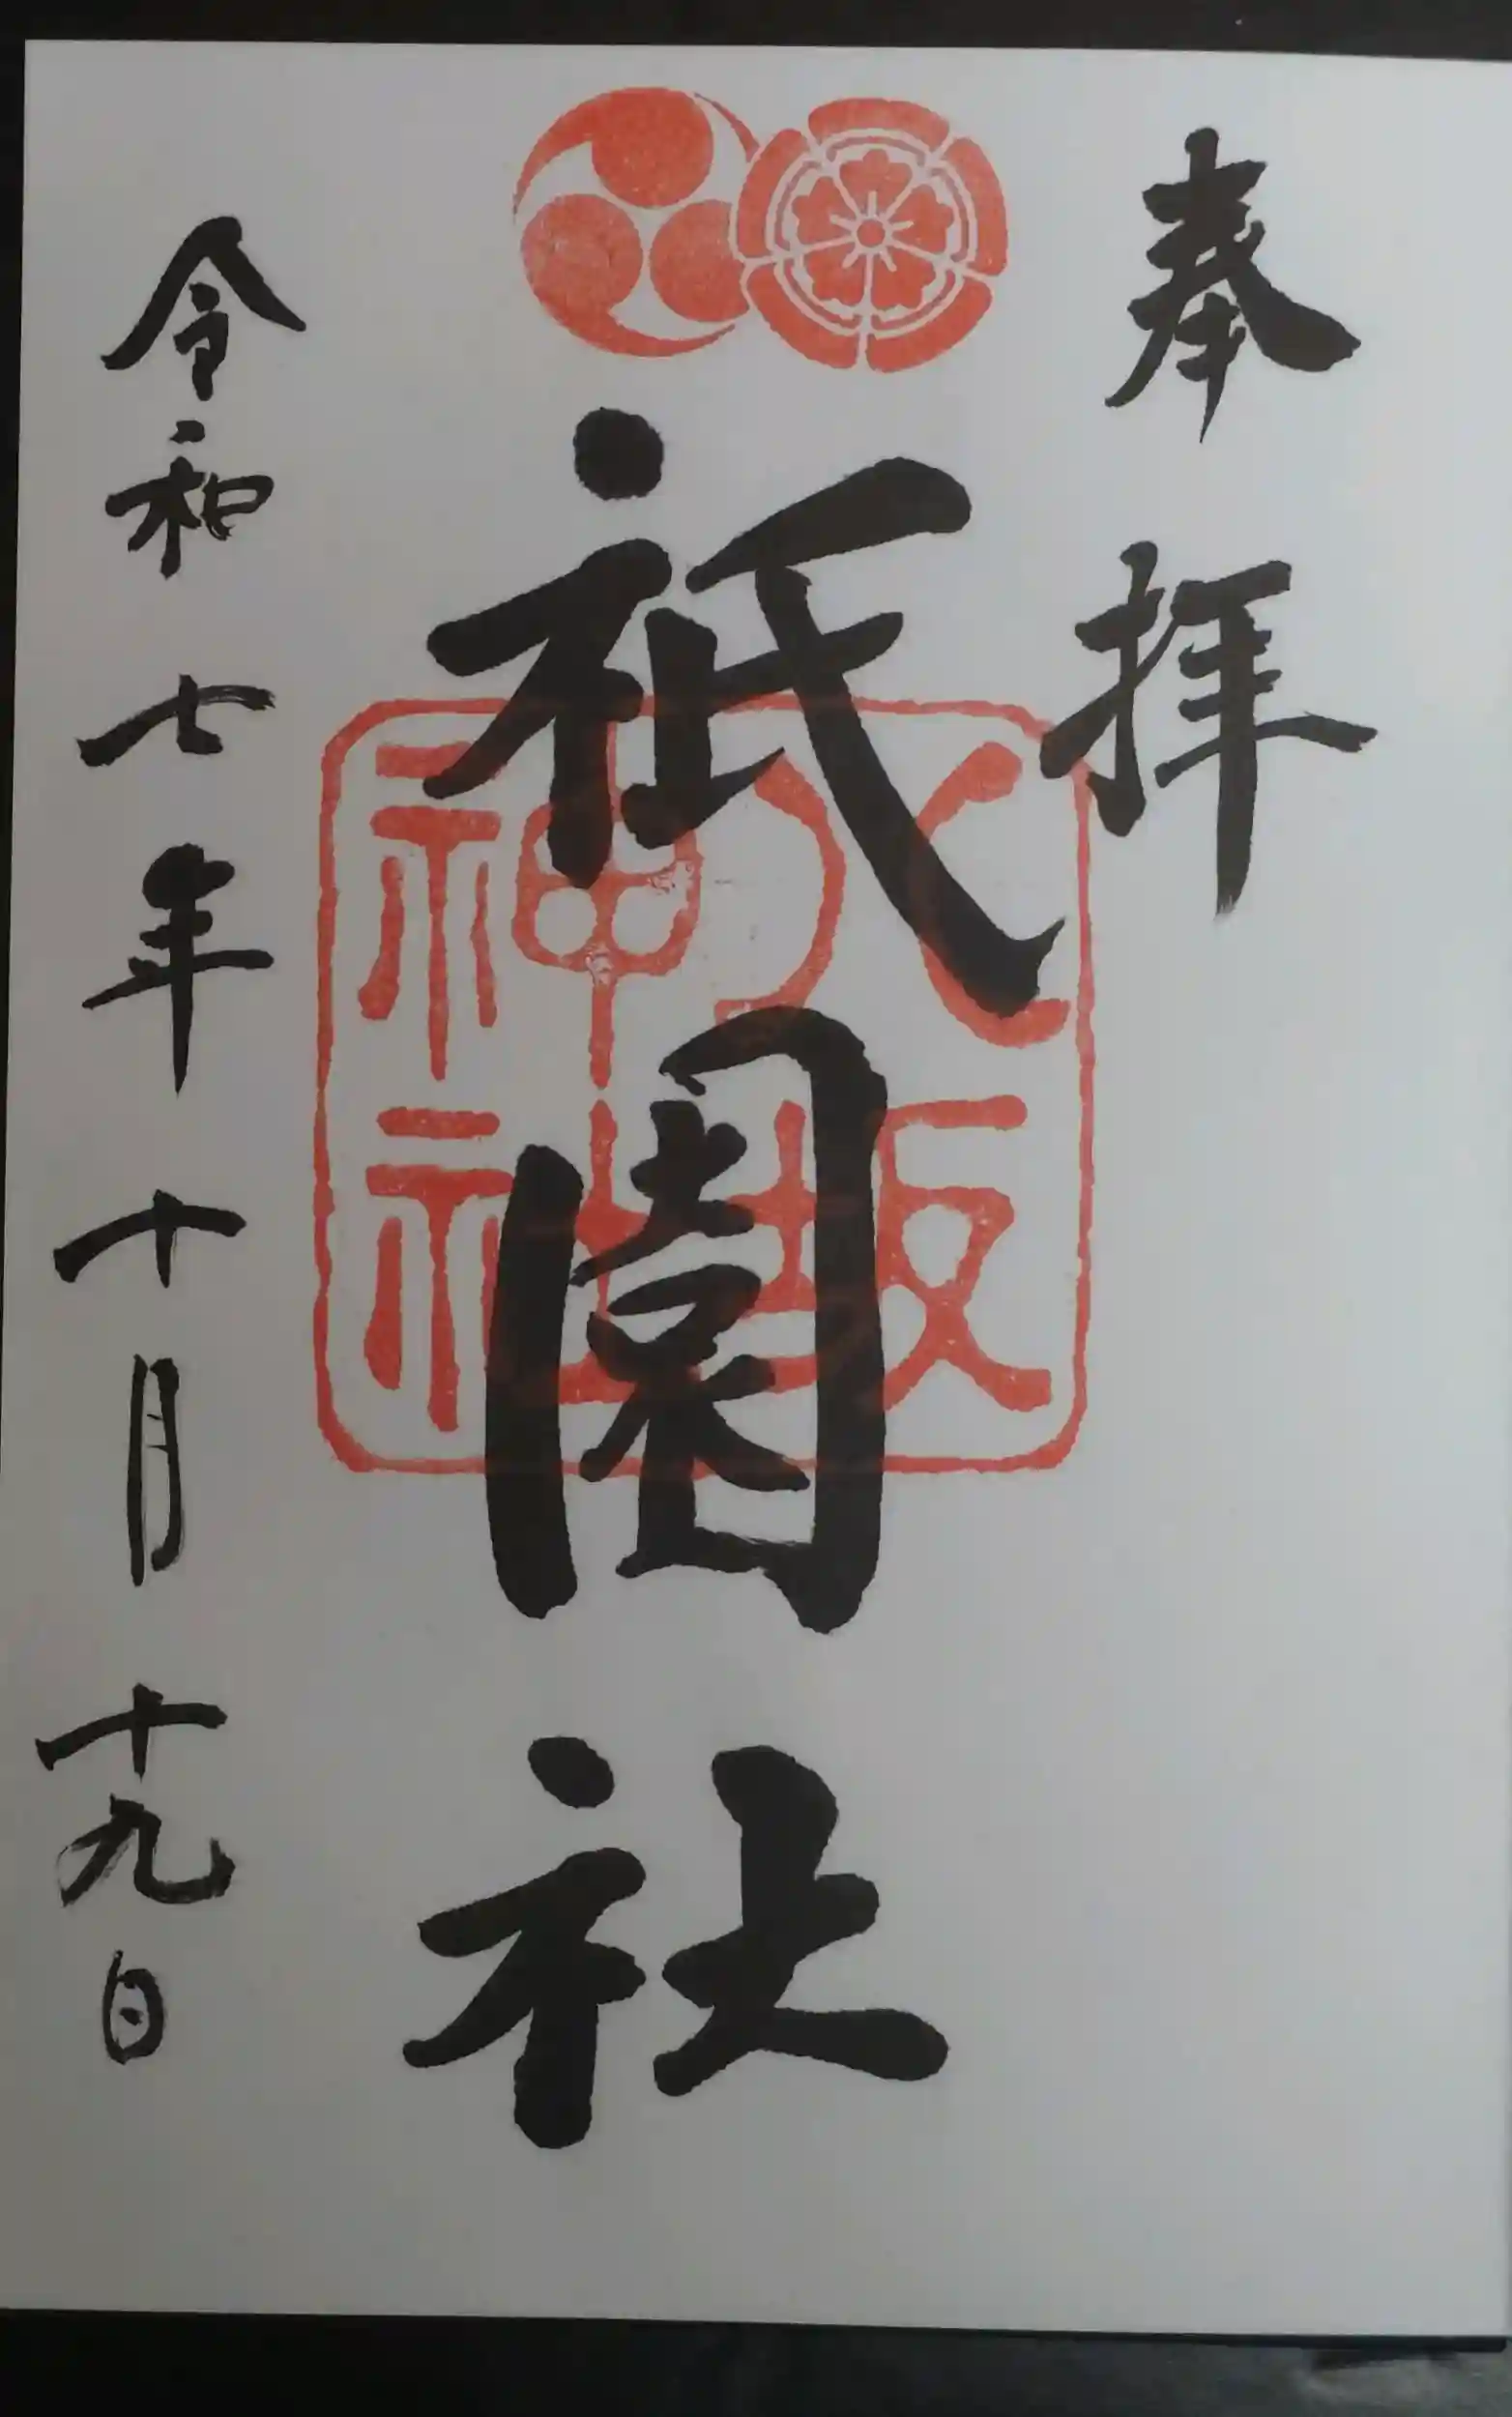 奉拝
祇園社
八坂
神社
令和七年十月十九日